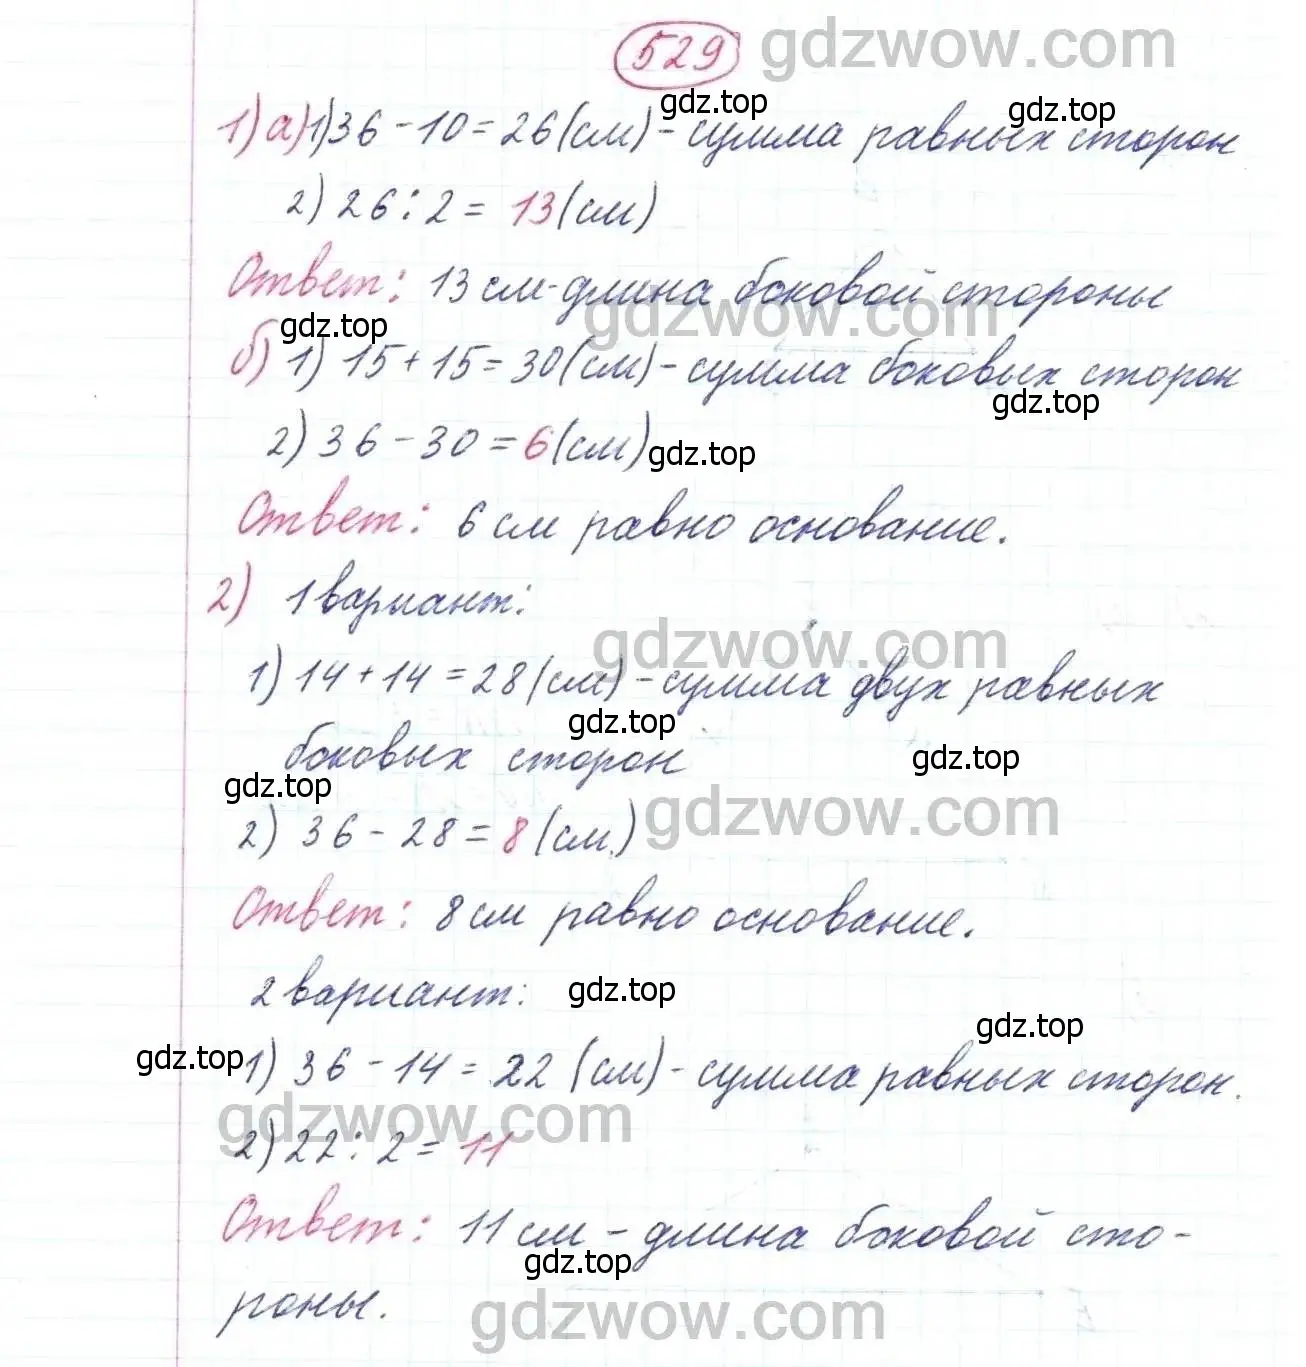 529 gdzwow.com
gdz.top gdz.top
1) а) 1) 36 - 10 = 26 (см) - сумма равных сторон
2) 26 : 2 = 13 (см)
Ответ: 13 см - длина боковой стороны
gdz.top gdzwow.com
б) 1) 15 + 15 = 30 (см) - сумма боковых сторон
gdz.top
2) 36 - 30 = 6 (см) gdz.top
Ответ: 6 см равно основание.
2) 1 вариант:
gdzwow.com
1) 14 + 14 = 28 (см) - сумма двух равных
gdz.top
боковых сторон gdz.top
gdz.top
2) 36 - 28 = 8 (см.) gdzwow.com
Ответ: 8 см равно основание.
2 вариант: gdz.top
gdz.top
gdz.top 1) 36 - 14 = 22 (см) - сумма равных сторон.
gdzwow.com
2) 22 : 2 = 11
Ответ: 11 см - длина боковой сто-
gdz.top
роны. gdzwow.com